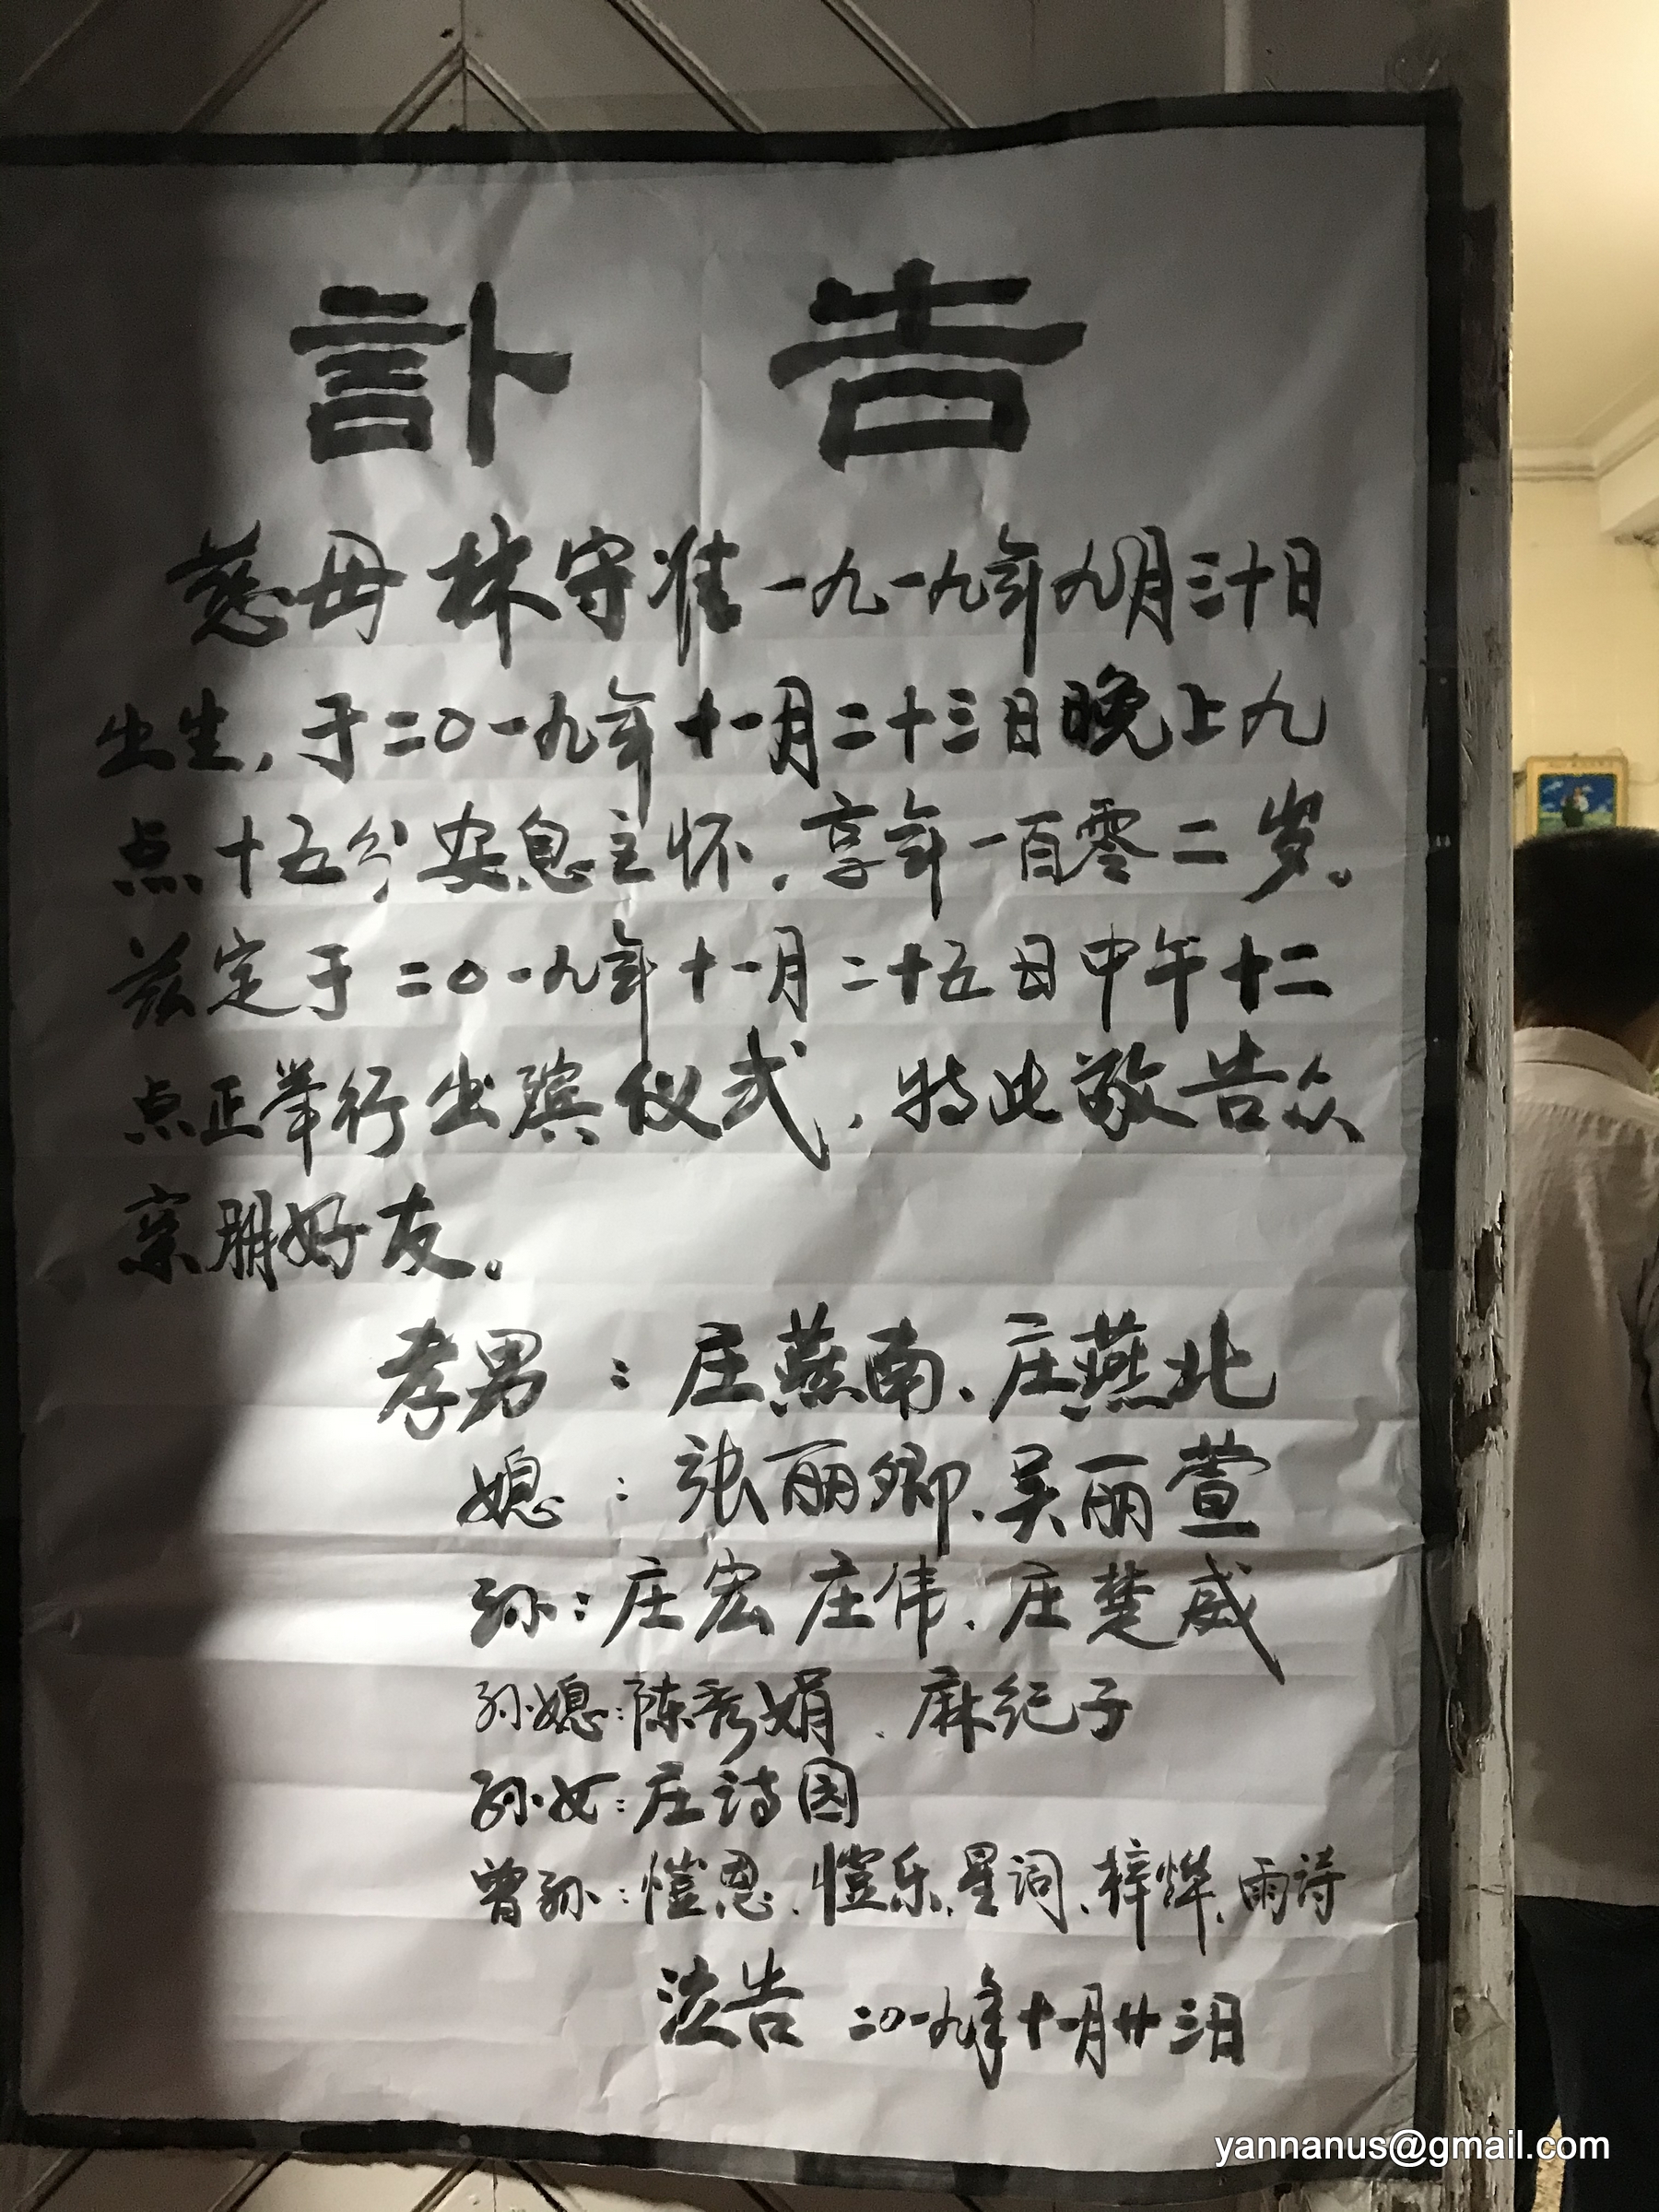 訃告
慈母林守准一九一九年九月三十日
出生,于二〇一九年十一月二十三日晚上九
点十五分安息主怀,享年一百零二岁。
兹定于二〇一九年十一月二十五日中午十二
点正举行出殡仪式,特此敬告众
亲朋好友。
孝男:庄燕南、庄燕北
媳:张丽卿、吴丽萱
孙:庄宏 庄伟、庄楚威
孙媳:陈秀娟、麻纪子
孙女:庄诗因
曾孙:恺恩、恺乐、星词、梓烨、雨诗
泣告 二〇一九年十一月廿三日
yannanus@gmail.com